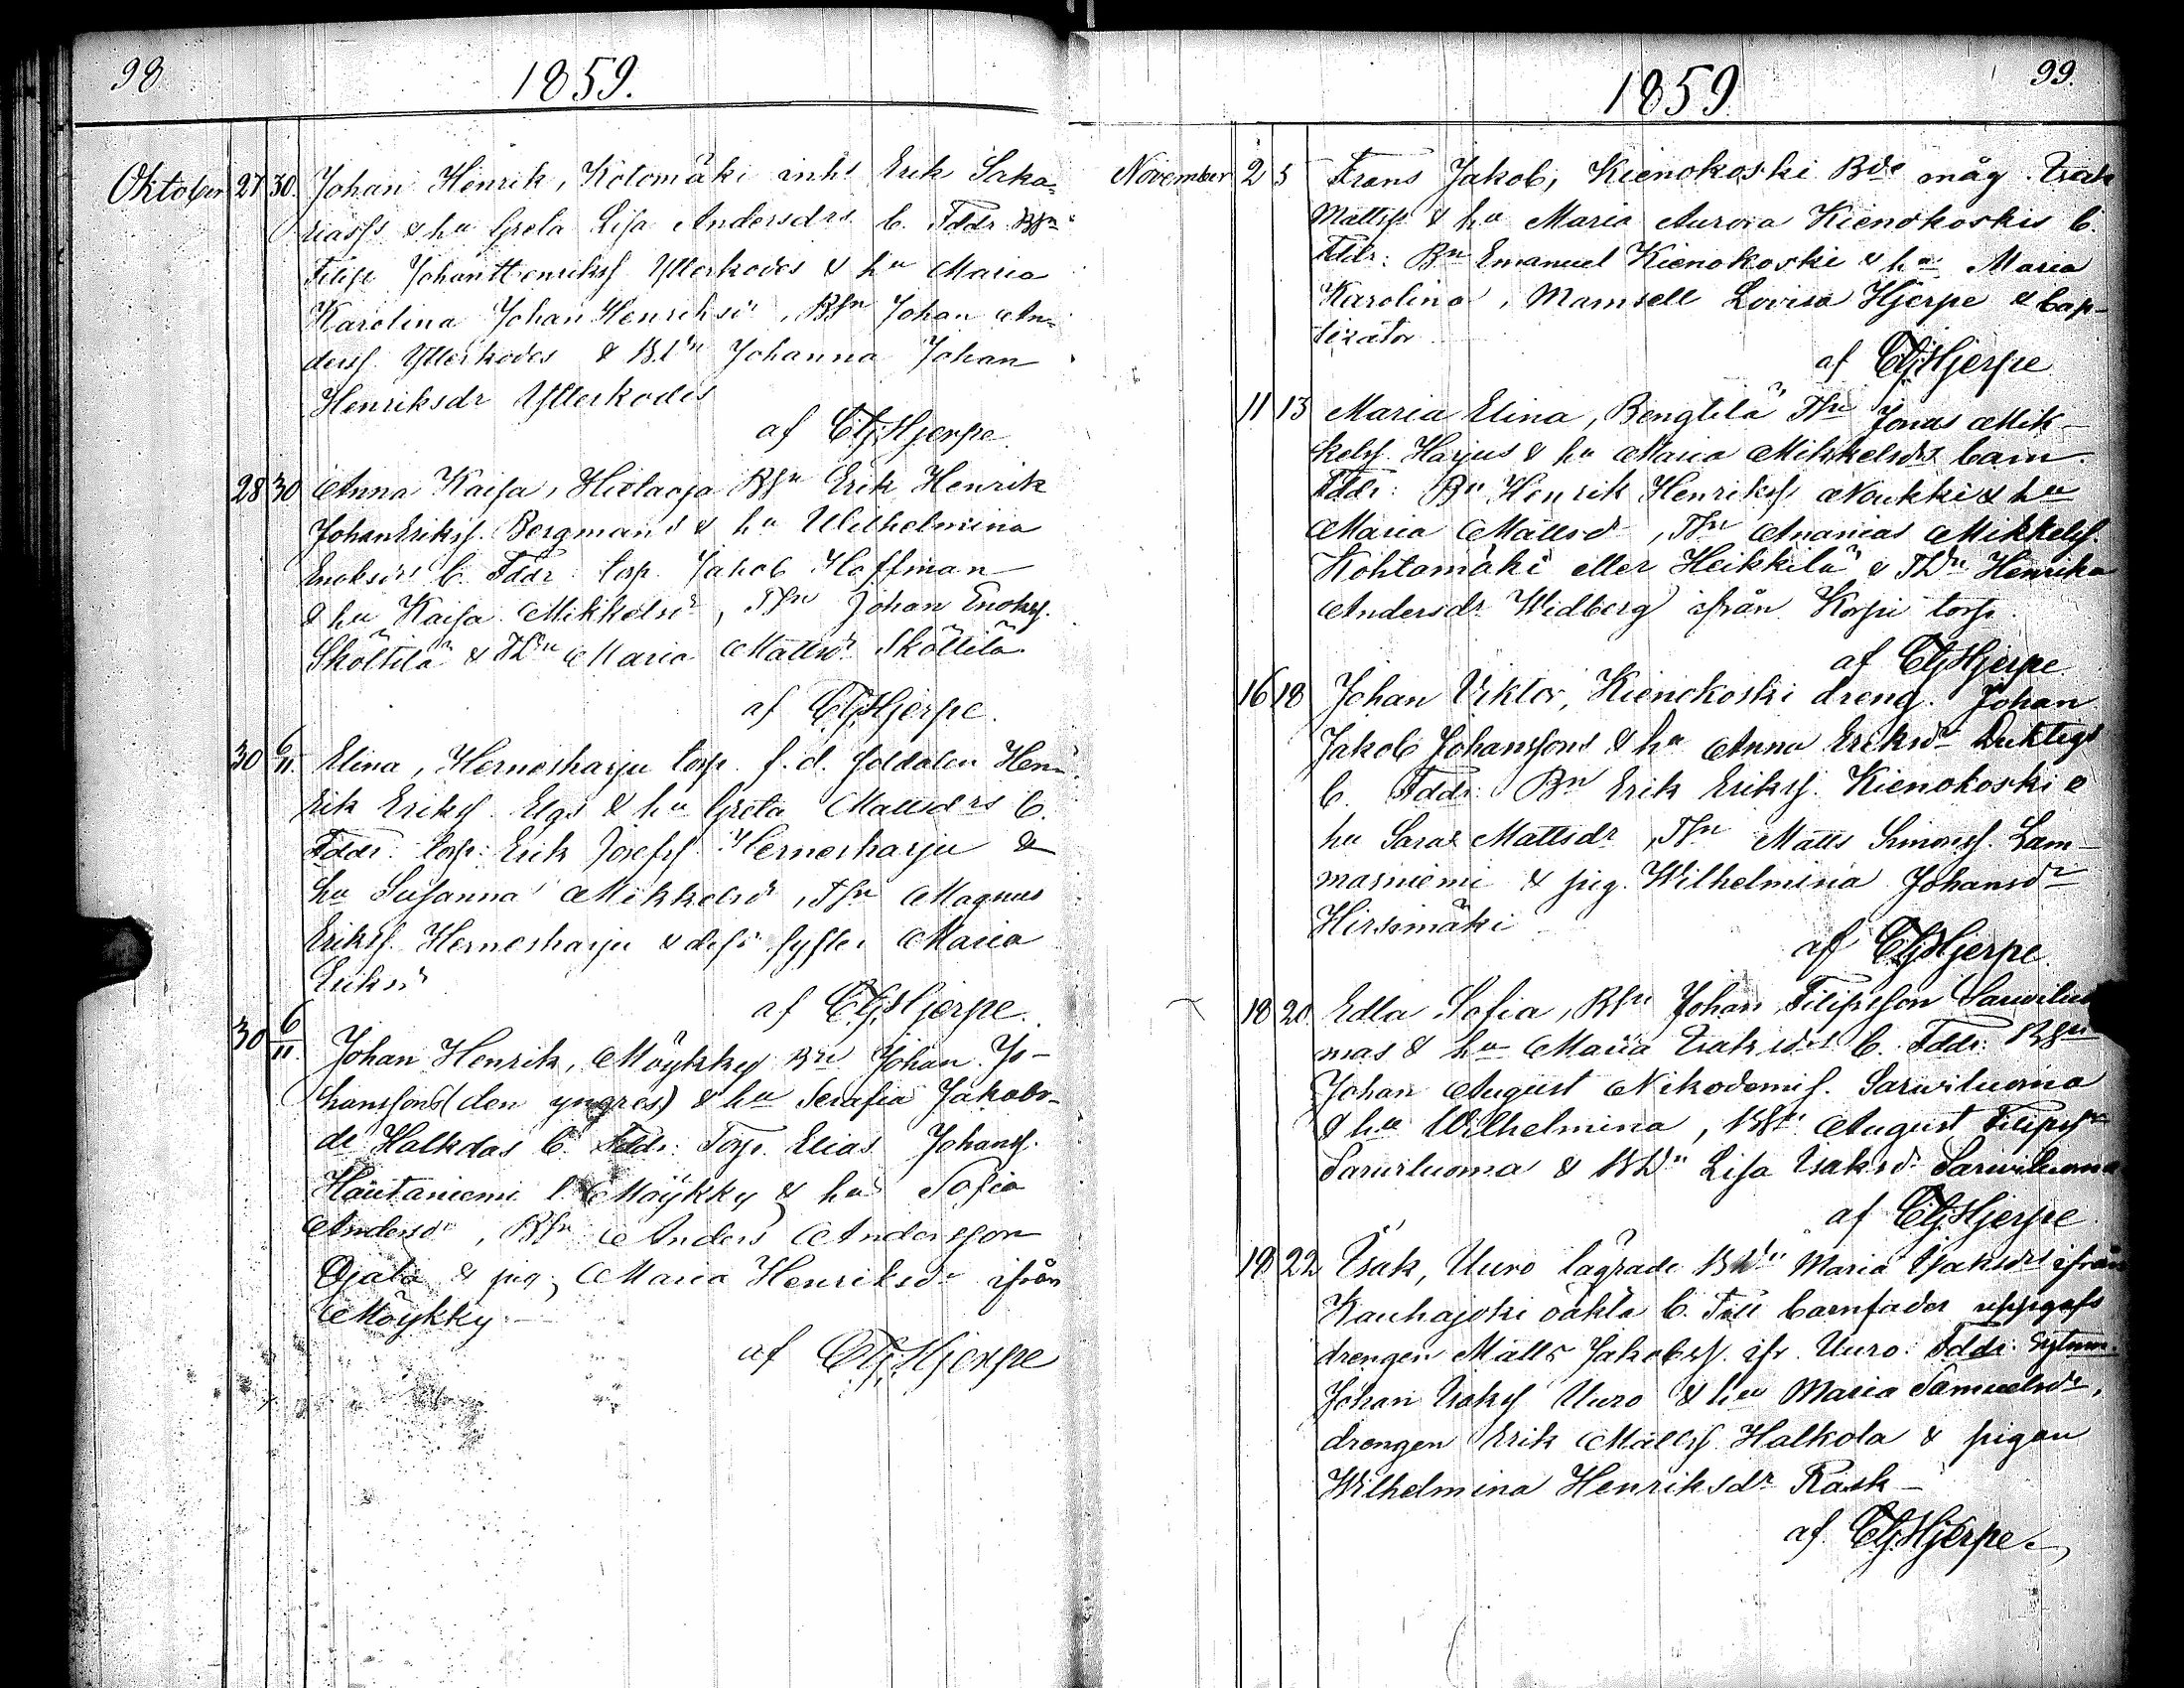 98.
1859.
Oktober 27 30. Johan Henrik, Kotomäki inhs Erik Saka-
riass & hu Greta Lisa Andersdrs b. Fddr Bsn
Filip JohanHenrikss Ytterkodes & hu Maria
Karolina Johan Henriksdr, Bsn Johan An-
derss Ytterkodes & Bdn Johanna Johan
Henriksdr Ytterkodes
af CGHjerpe.
28 30 Anna Kaisa, Hietaoja Bsn Erik Henrik
JohanErikss. Bergmans & hu Wilhelmina
Enoksdrs b. Fddr. torp. Jakob Hoffman
& hu Kaisa Mikkelsdr, Tsn Johan Enokss.
Sköttilä & TDn Maria Mattsdr Sköttilä
af CGHjerpe.
30 6/11. Elina, Hernesharju torp. f.d. soldaten Hen-
rik Erikss. Elgs & hu Greta Mattsdrs b.
Fddr. torp. Erik Josefss Hernesharju &
hu Susanna Mikkelsdr, Tsn Magnus
Erikss. Hernesharju & dess syster Maria
Eriksdr
af CGHjerpe.
30 6/11. Johan Henrik, Möykky Bn Johan Jo-
hanssons (den yngres) & hu Serafia Jakobs-
dr Halkolas b. Fddr. Torp. Elias Johanss.
Hautaniemi l. Möykky & hu Sofia
Andersdr, Bsn Anders Andersson
Ojala & pig. Maria Henriksdr ifrån
Möykky.
af CGHjerpe
99.
1859.
November 2 5 Frans Jakob, Kienokoski Bds måg Isak
Mattss & hu Maria Aurora Kienokoskis b.
Fddr: Bn Emanuel Kienokoski & hu Maria
Karolina, Mamsell Lovisa Hjerpe & bap-
tizator
af CGHjerpe
11 13 Maria Elina, Bengtilä Tsn Jonas Mik-
kelss. Harjus & hu Maria Mikkelsdrs barn.
Fddr: Bn Henrik Henrikss Noukki & hu
Maria Mattsdr, Tsn Ananias Mikkelss.
Kohtamäki eller Heikkilä & TDn Henrika
Andersdr Widberg ifrån Korpi torp.
af CGHjerpe.
16 18 Johan Viktor, Kienokoski dreng. Johan
Jakob Johanssons & hu Anna Eriksdr Duktigs
b. Fddr: Bn Erik Erikss. Kienokoski &
hu Sara Mattsdr, Tsn Matts Simonss. Lam-
masniemi & pig. Wilhelmina Johansdr
Hirsimäki
af CGHjerpe.
18 20. Edla Sofia, Bsn Johan Filipsson Sarviluo-
mas & hu Maria Isaksdrs b. Fddr: Bsn
Johan August Nikodemis. Sarviluoma
& hu Wilhelmina, Bsn August Filipss
Sarviluoma & BDn Lisa Isaksdr Sarviluoma
af CGHjerpe.
19 22 Isak, Uuro lägrade BDn Maria Isaksdrs ifrån
Kauhajoki oäkta b. Till barnfader uppgafs
drengen Matts Jakobss. ifr. Uuro. Fddr: Sytnm.
Johan Isakss Uuro & hu Maria Samuelsdr,
drengen Erik Mattss. Halkola & pigan
Wilhelmina Henriksdr Rask
af CGHjerpe.